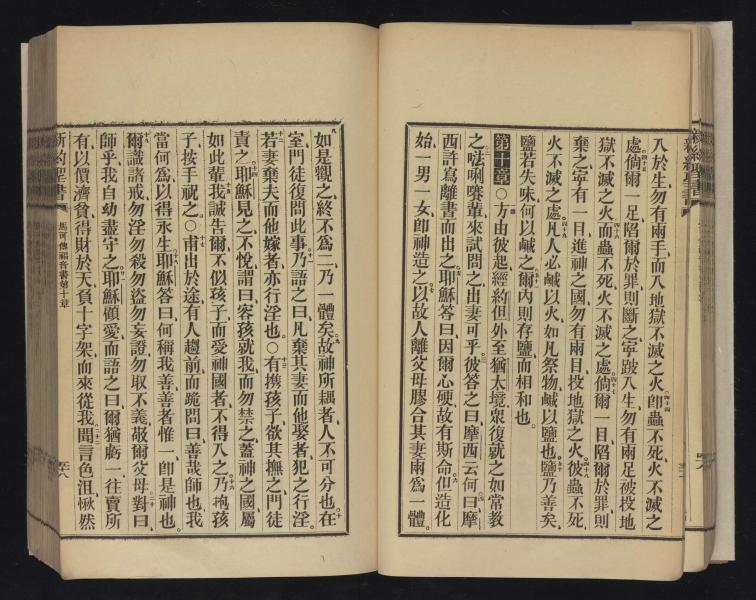 入於生勿有兩手而入地獄不滅之火卽蟲不死火不滅之
處倘爾一足陷爾於罪則斷之寜跛入生勿有兩足被投地
獄不滅之火而蟲不死火不滅之處倘爾一目陷爾於罪則
棄之寜有一目進神之國勿有兩目投地獄之火彼蟲不死
火不滅之處凡人必鹹以火如凡祭物鹹以鹽也鹽乃善矣
鹽若失味何以鹹之爾內則存鹽而相和也
第十章○方由彼起經約但外至猶太境衆復就之如常教
之𠵽唎賽輩來試問之出妻可乎彼答之曰摩西云何曰摩
西許寫離書而出之耶穌答曰因爾心硬故有斯命但造化
始一男一女卽神造之以故人離父母膠合其妻兩爲一體
如是觀之終不爲二乃一體矣故神所耦者人不可分也在
室門徒復問此事乃語之曰凡棄其妻而他娶者犯之行淫
若妻棄夫而他嫁者亦行淫也○有携孩子欲其撫之門徒
責之耶穌見之不悅謂曰容孩就我而勿禁之蓋神之國屬
如此輩我誠告爾不似孩子而愛神國者不得入之乃抱孩
子按手祝之○甫出於途有人趨前而跪問曰善哉師也我
當何爲以得永生耶穌答曰何稱我善善者惟一卽是神也
爾識諸戒勿淫勿殺勿盜勿妄證勿取不義敬爾父母對曰
師乎我自幼盡守之耶穌顧愛而語之曰爾猶虧一往賣所
有以價濟貧得財於天負十字架而來從我聞言色沮愀然
新約聖書 馬可傳福音書第十章